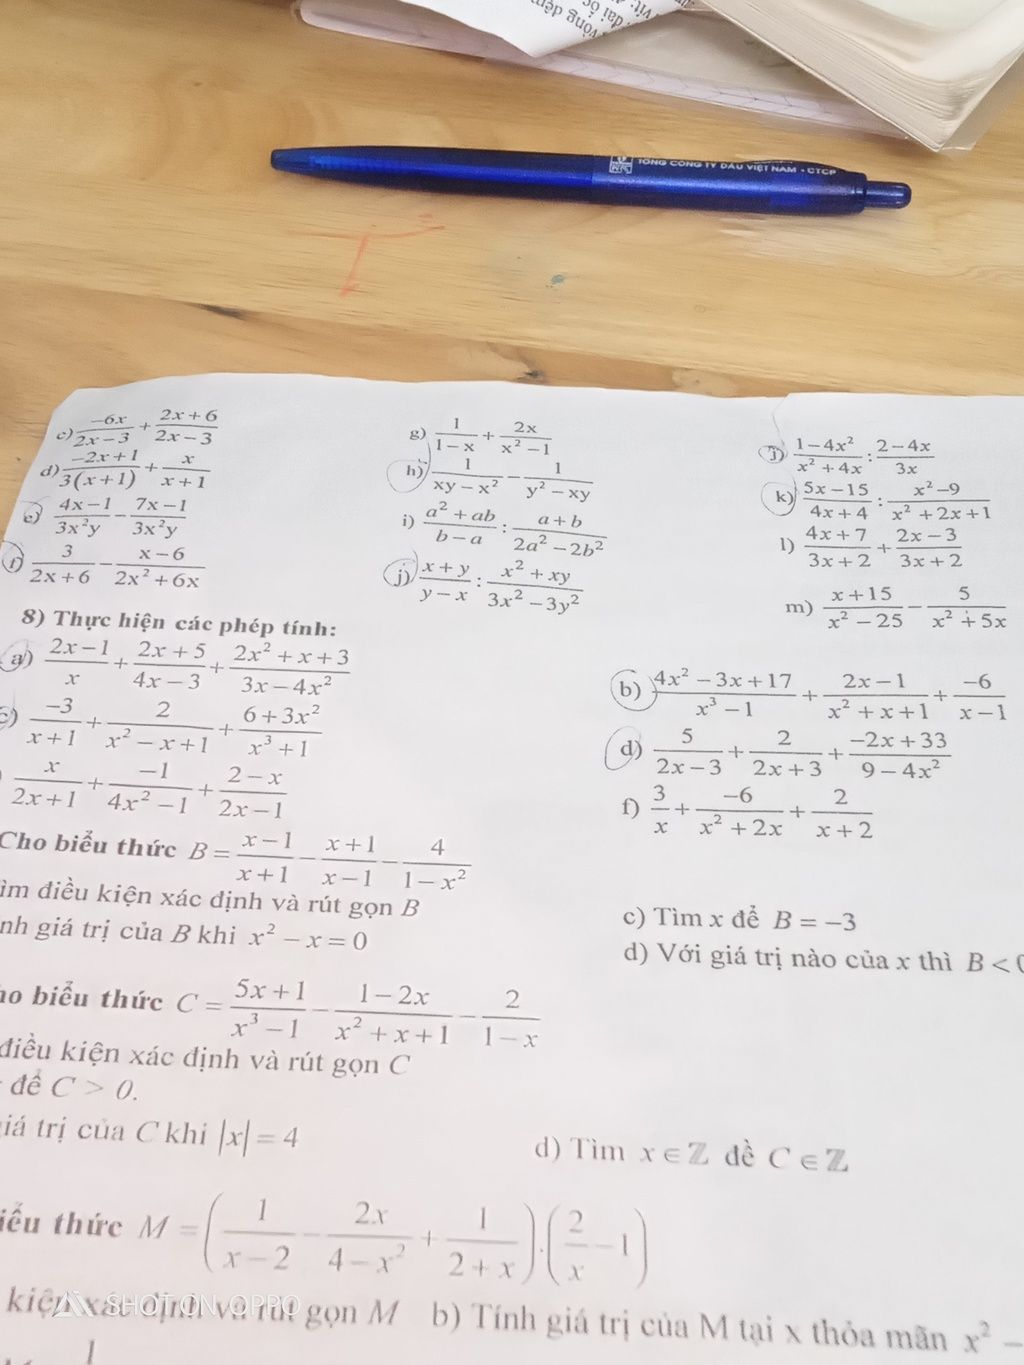 vòng đệm
TỔNG CÔNG TY DẦU VIỆT NAM - CTCP
c) \frac{-6x}{2x-3} + \frac{2x+6}{2x-3}
d) \frac{-2x+1}{3(x+1)} + \frac{x}{x+1}
e) \frac{4x-1}{3x^2y} - \frac{7x-1}{3x^2y}
f) \frac{3}{2x+6} - \frac{x-6}{2x^2+6x}
g) \frac{1}{1-x} + \frac{2x}{x^2-1}
h) \frac{1}{xy-x^2} - \frac{1}{y^2-xy}
i) \frac{a^2+ab}{b-a} : \frac{a+b}{2a^2-2b^2}
j) \frac{x+y}{y-x} : \frac{x^2+xy}{3x^2-3y^2}
j) \frac{1-4x^2}{x^2+4x} : \frac{2-4x}{3x}
k) \frac{5x-15}{4x+4} : \frac{x^2-9}{x^2+2x+1}
l) \frac{4x+7}{3x+2} + \frac{2x-3}{3x+2}
m) \frac{x+15}{x^2-25} - \frac{5}{x^2+5x}
8) Thực hiện các phép tính:
a) \frac{2x-1}{x} + \frac{2x+5}{4x-3} + \frac{2x^2+x+3}{3x-4x^2}
b) \frac{4x^2-3x+17}{x^3-1} + \frac{2x-1}{x^2+x+1} + \frac{-6}{x-1}
c) \frac{-3}{x+1} + \frac{2}{x^2-x+1} + \frac{6+3x^2}{x^3+1}
d) \frac{5}{2x-3} + \frac{2}{2x+3} + \frac{-2x+33}{9-4x^2}
\frac{x}{2x+1} + \frac{-1}{4x^2-1} + \frac{2-x}{2x-1}
f) \frac{3}{x} + \frac{-6}{x^2+2x} + \frac{2}{x+2}
Cho biểu thức B = \frac{x-1}{x+1} - \frac{x+1}{x-1} - \frac{4}{1-x^2}
ìm điều kiện xác định và rút gọn B
c) Tìm x để B = -3
nh giá trị của B khi x^2 - x = 0
d) Với giá trị nào của x thì B <
ho biểu thức C = \frac{5x+1}{x^3-1} - \frac{1-2x}{x^2+x+1} - \frac{2}{1-x}
điều kiện xác định và rút gọn C
để C > 0.
iá trị của C khi |x| = 4
d) Tìm x ∈ ℤ để C ∈ ℤ
iểu thức M = \left(\frac{1}{x-2} - \frac{2x}{4-x^2} + \frac{1}{2+x}\right).\left(\frac{2}{x} - 1\right)
kiện xác định và rút gọn M b) Tính giá trị của M tại x thỏa mãn x^2 -
SHOT ON OPPO
1